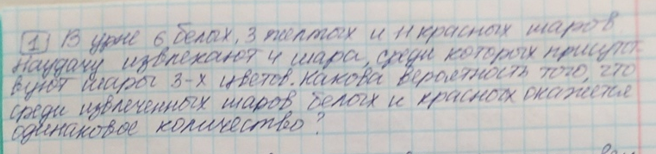 1 В урне 6 белых, 3 желтых и 11 красных шаров
Наудачу извлекают 4 шара, среди которых присутст-
вуют шары 3-х цветов. Какова вероятность того, что
среди извлеченных шаров белых и красных окажется
одинаковое количество?